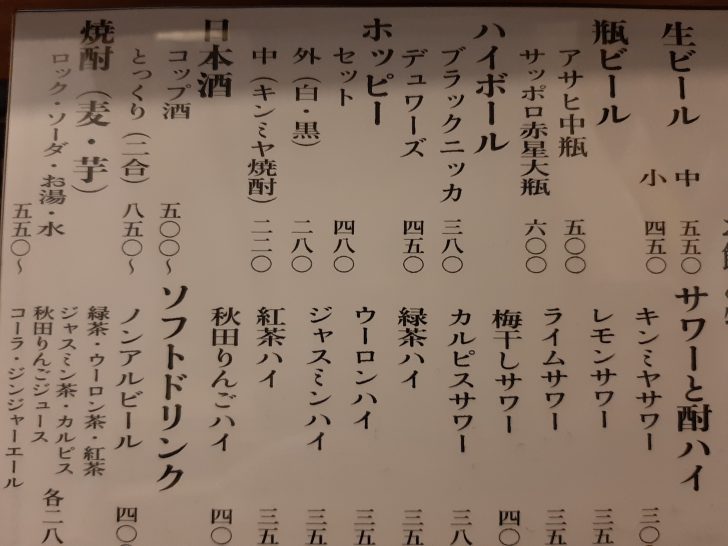 生ビール 中 五五〇
小 四五〇
瓶ビール
アサヒ中瓶 五〇〇
サッポロ赤星大瓶 六〇〇
ハイボール
ブラックニッカ 三八〇
デュワーズ 四五〇
ホッピー
セット 四八〇
外（白・黒） 二八〇
中（キンミヤ焼酎） 二二〇
日本酒
コップ酒 五〇〇〜
とっくり（二合） 八五〇〜
焼酎（麦・芋）
ロック・ソーダ・お湯・水 五五〇〜
サワーと酎ハイ
キンミヤサワー 三〇
レモンサワー 三五
ライムサワー 三五
梅干しサワー 四〇
カルピスサワー 三八
緑茶ハイ 三五
ウーロンハイ 三五
ジャスミンハイ 三五
紅茶ハイ 三五
秋田りんごハイ 四〇
ソフトドリンク
ノンアルビール 四〇
緑茶・ウーロン茶・紅茶
ジャスミン茶・カルピス
秋田りんごジュース
コーラ・ジンジャーエール
各二八